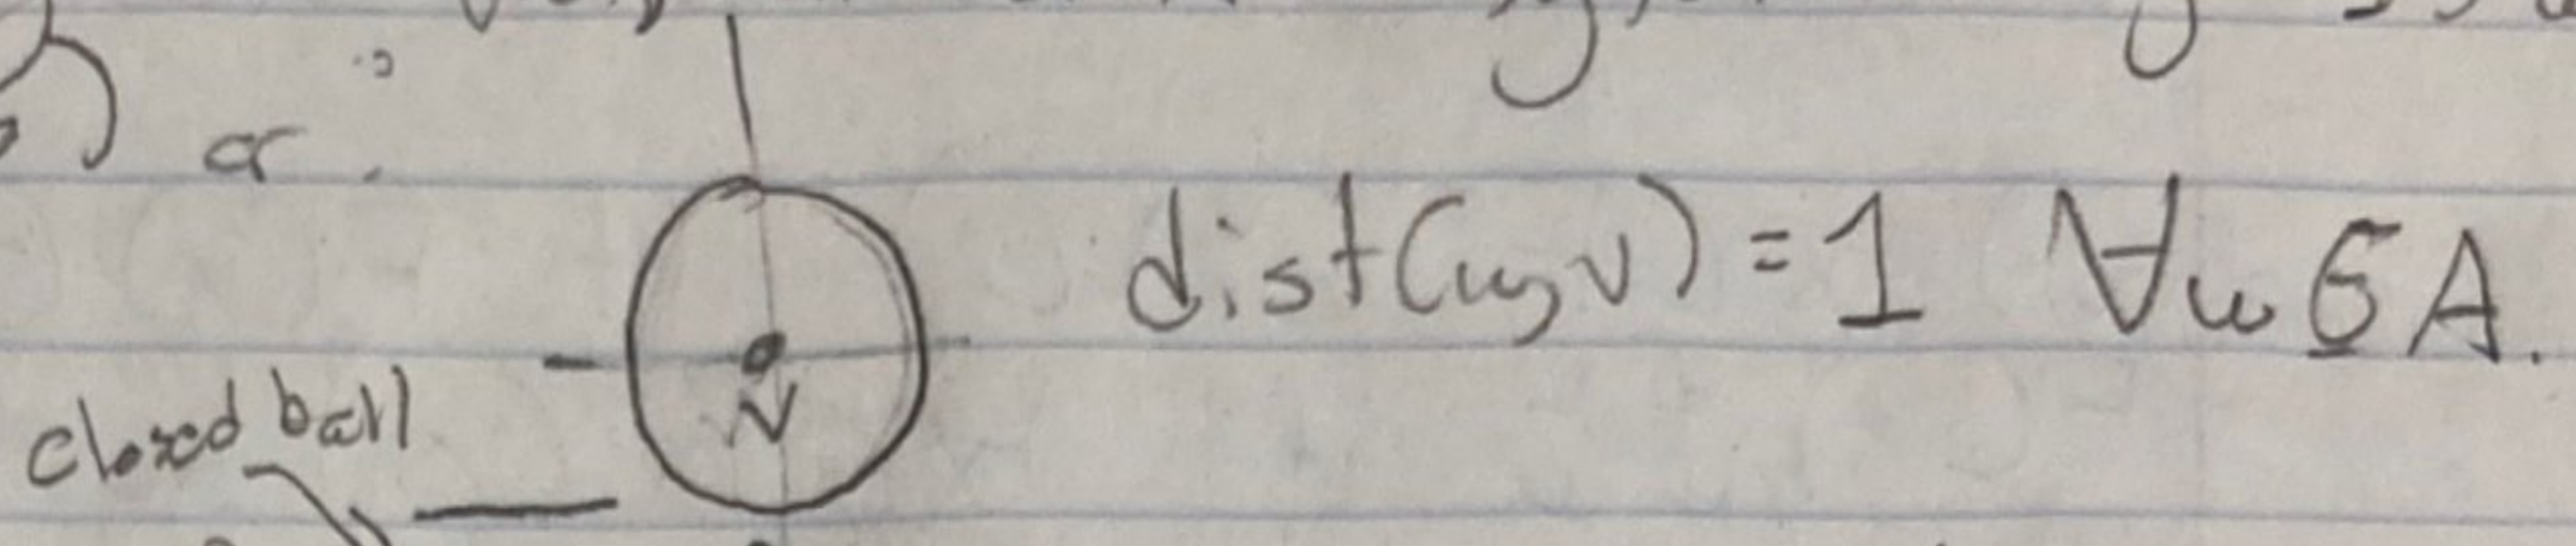 dist(w, v) = 1 ∀w ∈ A.
v
closed ball